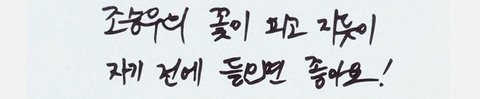 조승우의 꽃이 피고 지듯이
자기 전에 들으면 좋아요!